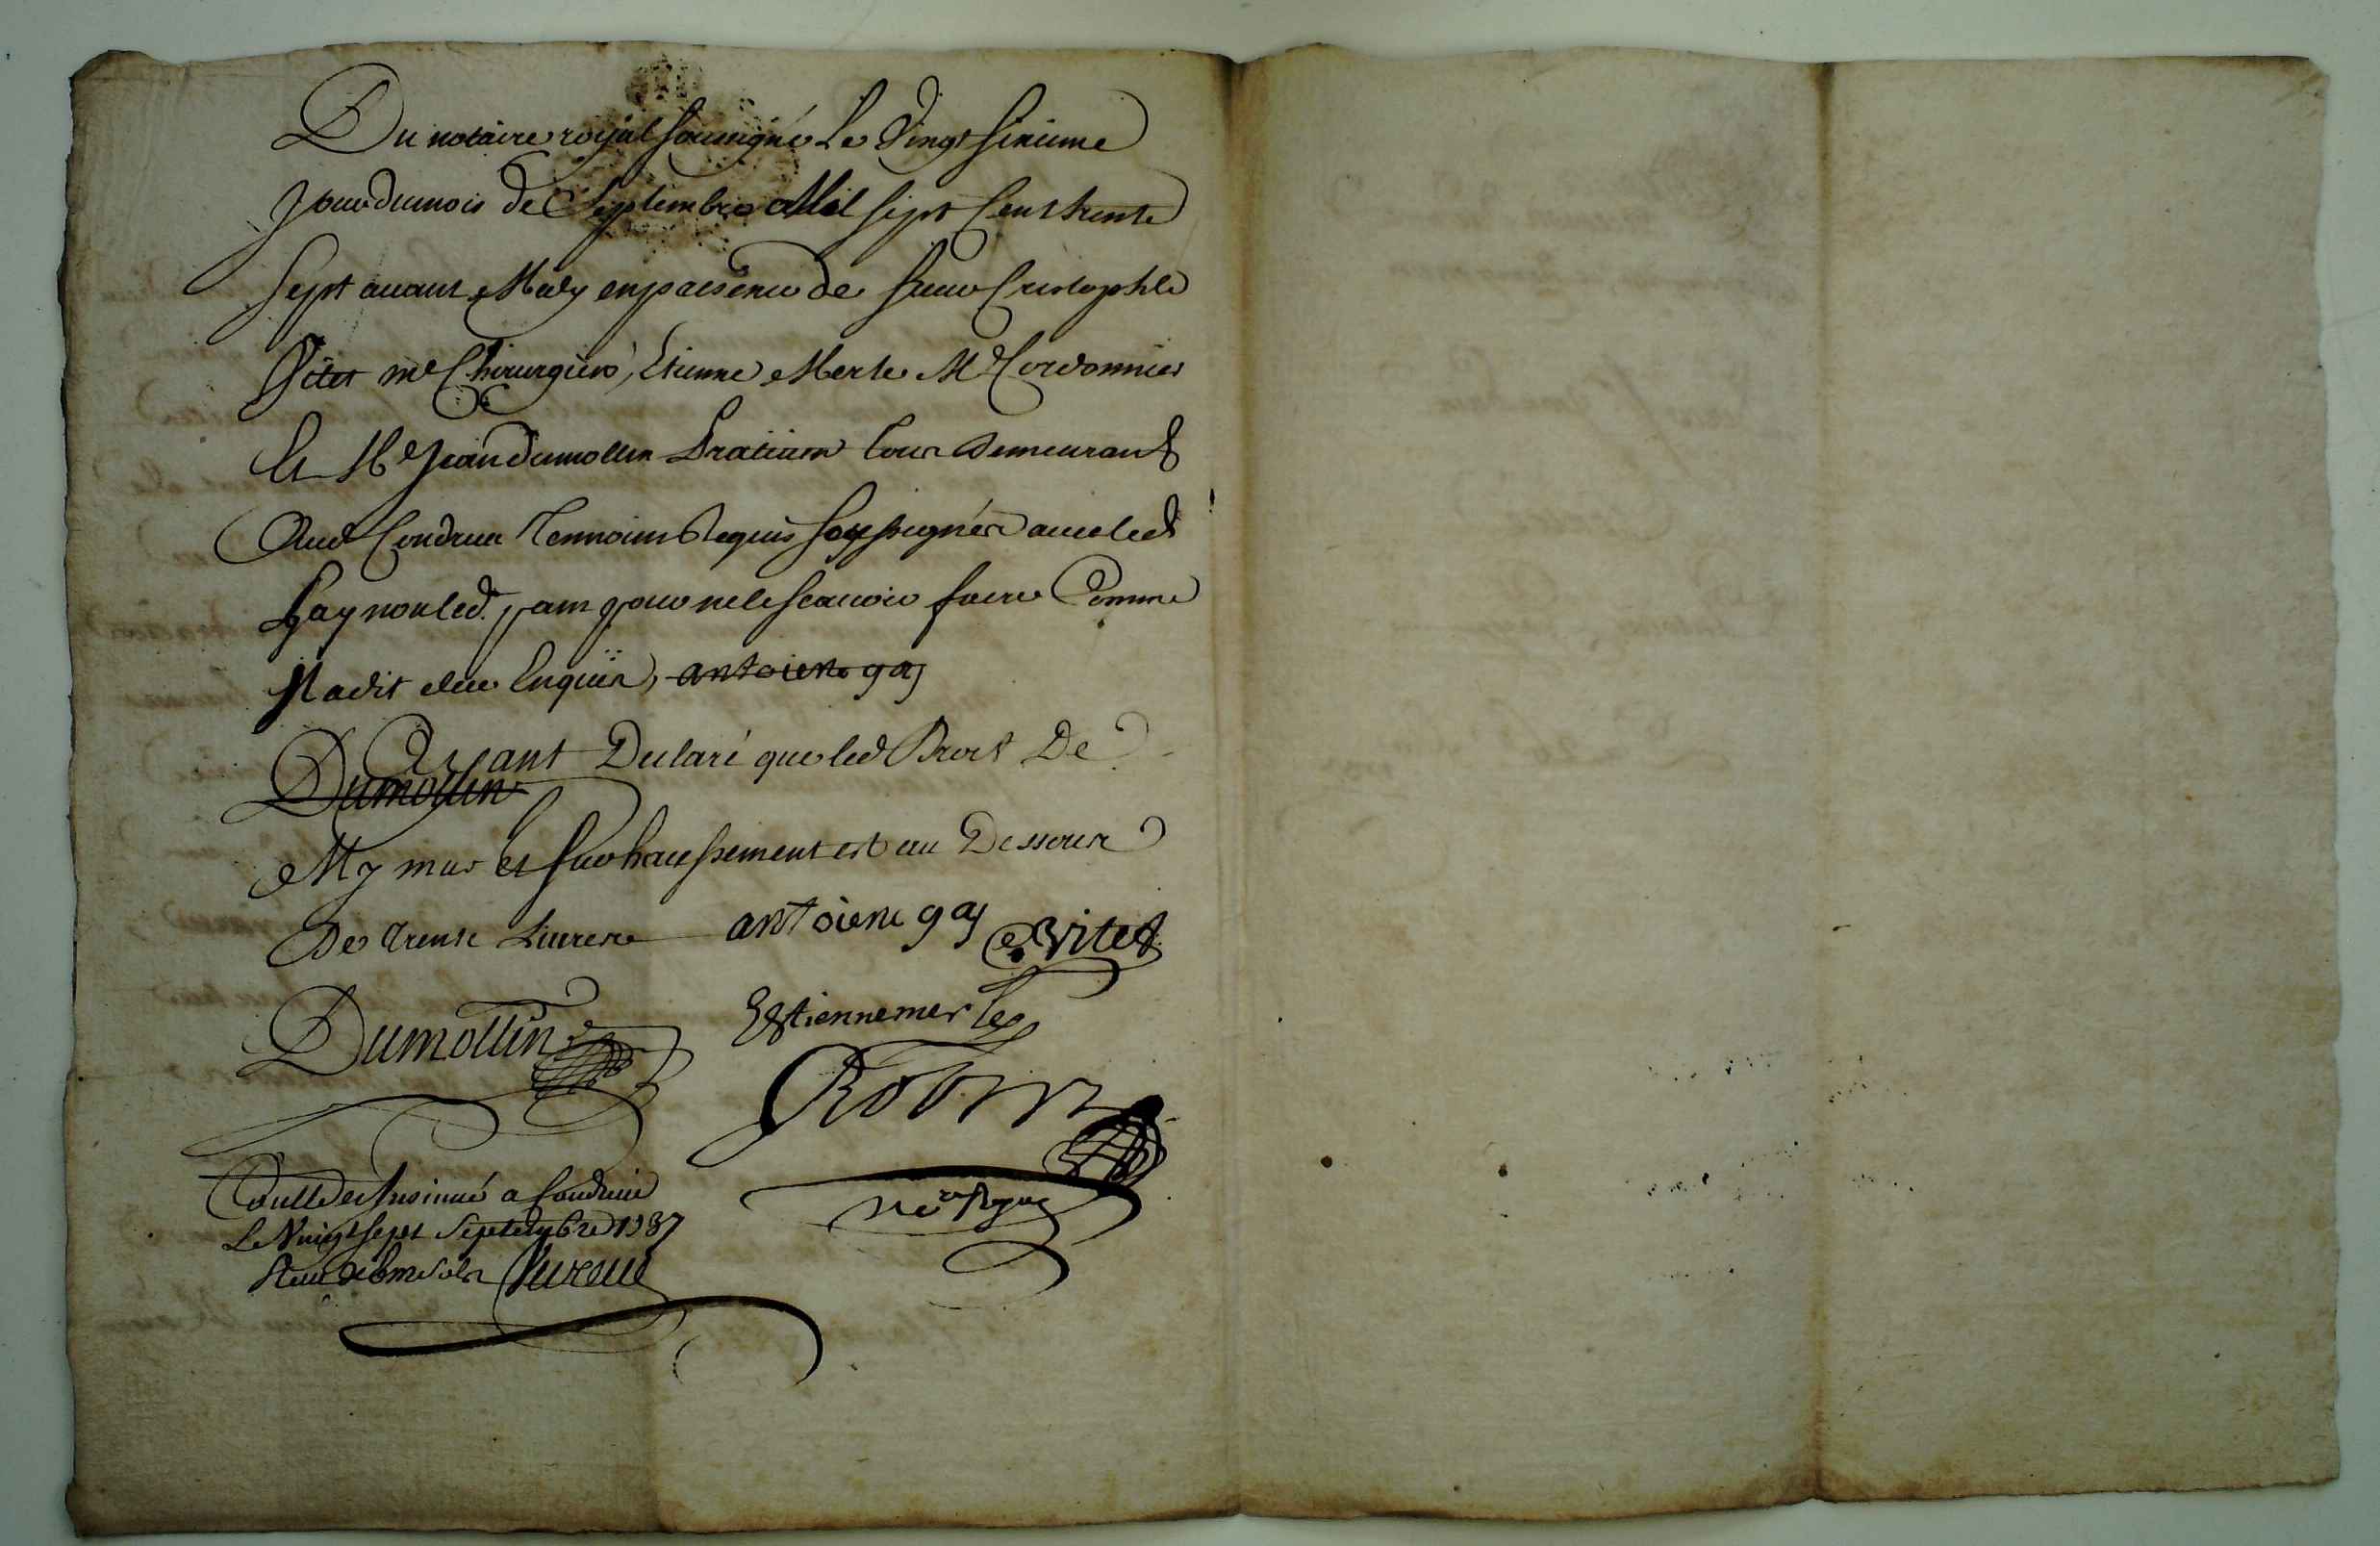 Du notaire royal soussigné le vingt sixieme
Jour du mois de Septembre Mil sept Cent trente
Sept avant Midy en presence de sieur Cristophle
Vitet me Chirurgien, Etienne Merle Me Cordonnier
Et Me Jean Dumollin Praticien tous demeurants
Aud Condrieu Temoins Requis soussignés avec led
Gay non led. pour ne le scavoir faire Comme
Il a dit de ce Enquis, antoiene gay
Ayant Declaré que led Droit De
Dumollin
My mur et surhaussement est au Dessous
De trente Livres antoiene gay Vitet
Estienne merle
Dumollin
Robin
Nre Royal
Controllé et Insinué a Condrieu
Le Vingt sept Septembre 1737